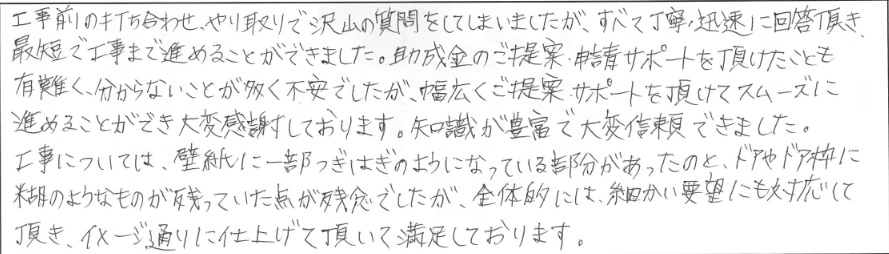 工事前の打ち合わせ、やり取りで沢山の質問をしてしまいましたが、すべて丁寧・迅速に回答頂き、
最短で工事まで進めることができました。助成金のご提案・申請サポートを頂けたことも
有難く、分からないことが多く不安でしたが、幅広くご提案・サポートを頂けてスムーズに
進めることができ大変感謝しております。知識が豊富で大変信頼できました。
工事については、壁紙に一部つぎはぎのようになっている部分があったのと、ドアやドア枠に
糊のようなものが残っていた点が残念でしたが、全体的には、細かい要望にも対応して
頂き、イメージ通りに仕上げて頂いて満足しております。